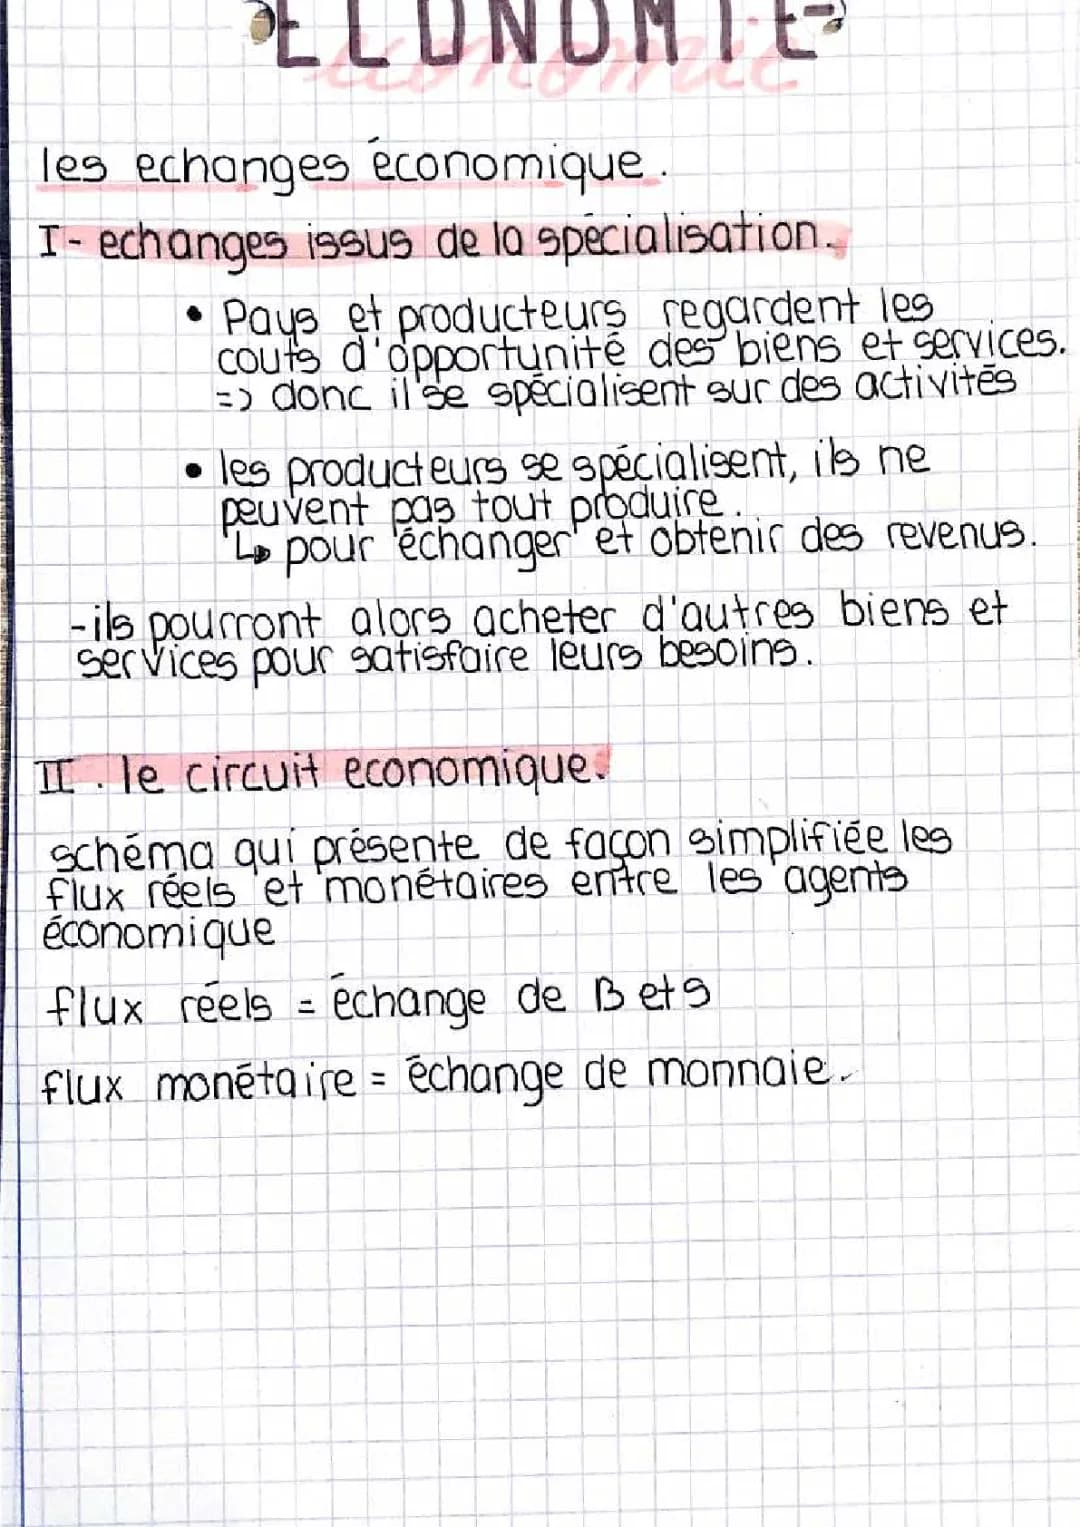 ECONOMIE
economie
les echanges économique.
I- echanges issus de la spécialisation.
• Pays et producteurs regardent les
couts d'opportunité des biens et services.
=> donc il se spécialisent sur des activités
• les producteurs se spécialisent, ils ne
peuvent pas tout produire.
↳ pour échanger et obtenir des revenus.
-ils pourront alors acheter d'autres biens et
services pour satisfaire leurs besoins.
II. le circuit economique.
schéma qui présente de façon simplifiée les
flux réels et monétaires entre les agents
économique
flux réels = échange de B et S
flux monétaire = échange de monnaie.